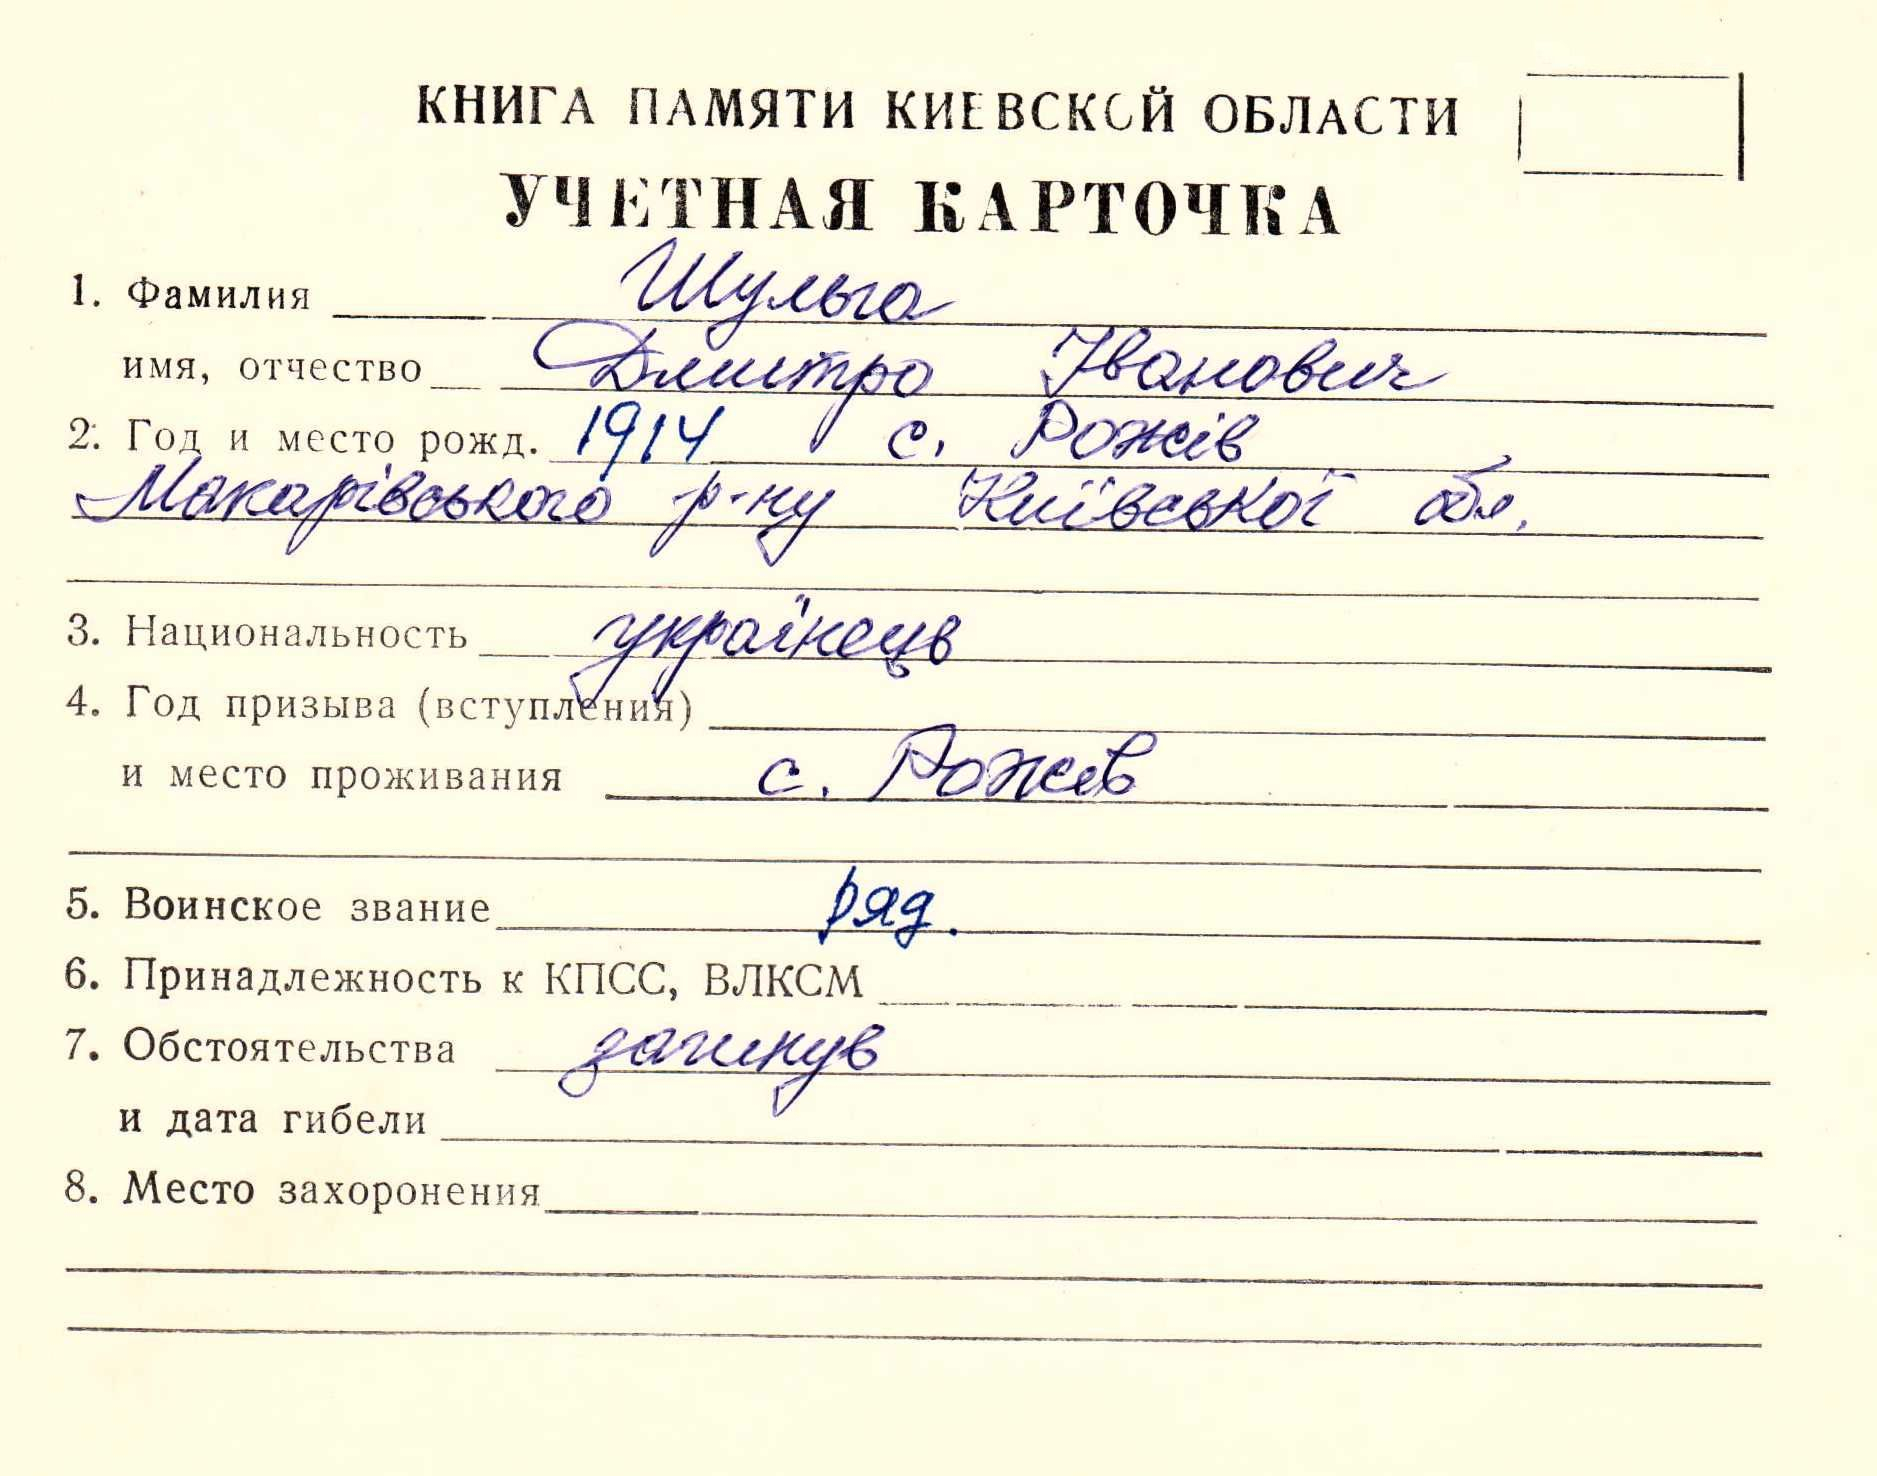 КНИГА ПАМЯТИ КИЕВСКОЙ ОБЛАСТИ
УЧЕТНАЯ КАРТОЧКА
1. Фамилия Шульга
имя, отчество Дмитро Іванович
2. Год и место рожд. 1914 с. Рожів
Макарівського р-ну Київської обл.
3. Национальность українець
4. Год призыва (вступления)
и место проживания с. Рожів
5. Воинское звание ряд.
6. Принадлежность к КПСС, ВЛКСМ
7. Обстоятельства загинув
и дата гибели
8. Место захоронения